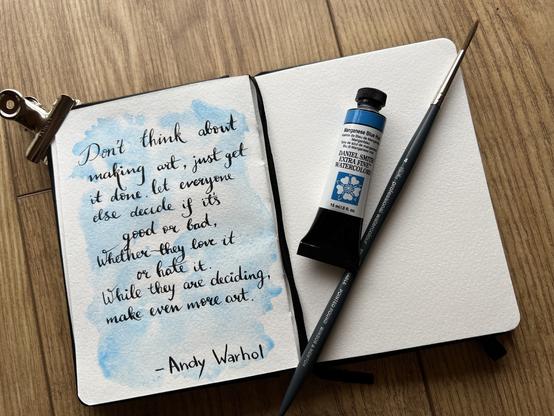 Don't think about
making art, just get
it done. let everyone
else decide if it's
good or bad,
Whether they love it
or hate it.
While they are deciding,
make even more art.
-Andy Warhol
Manganese Blue
DANIEL SMITH
EXTRA FINE™
WATERCOLOR
15 ml